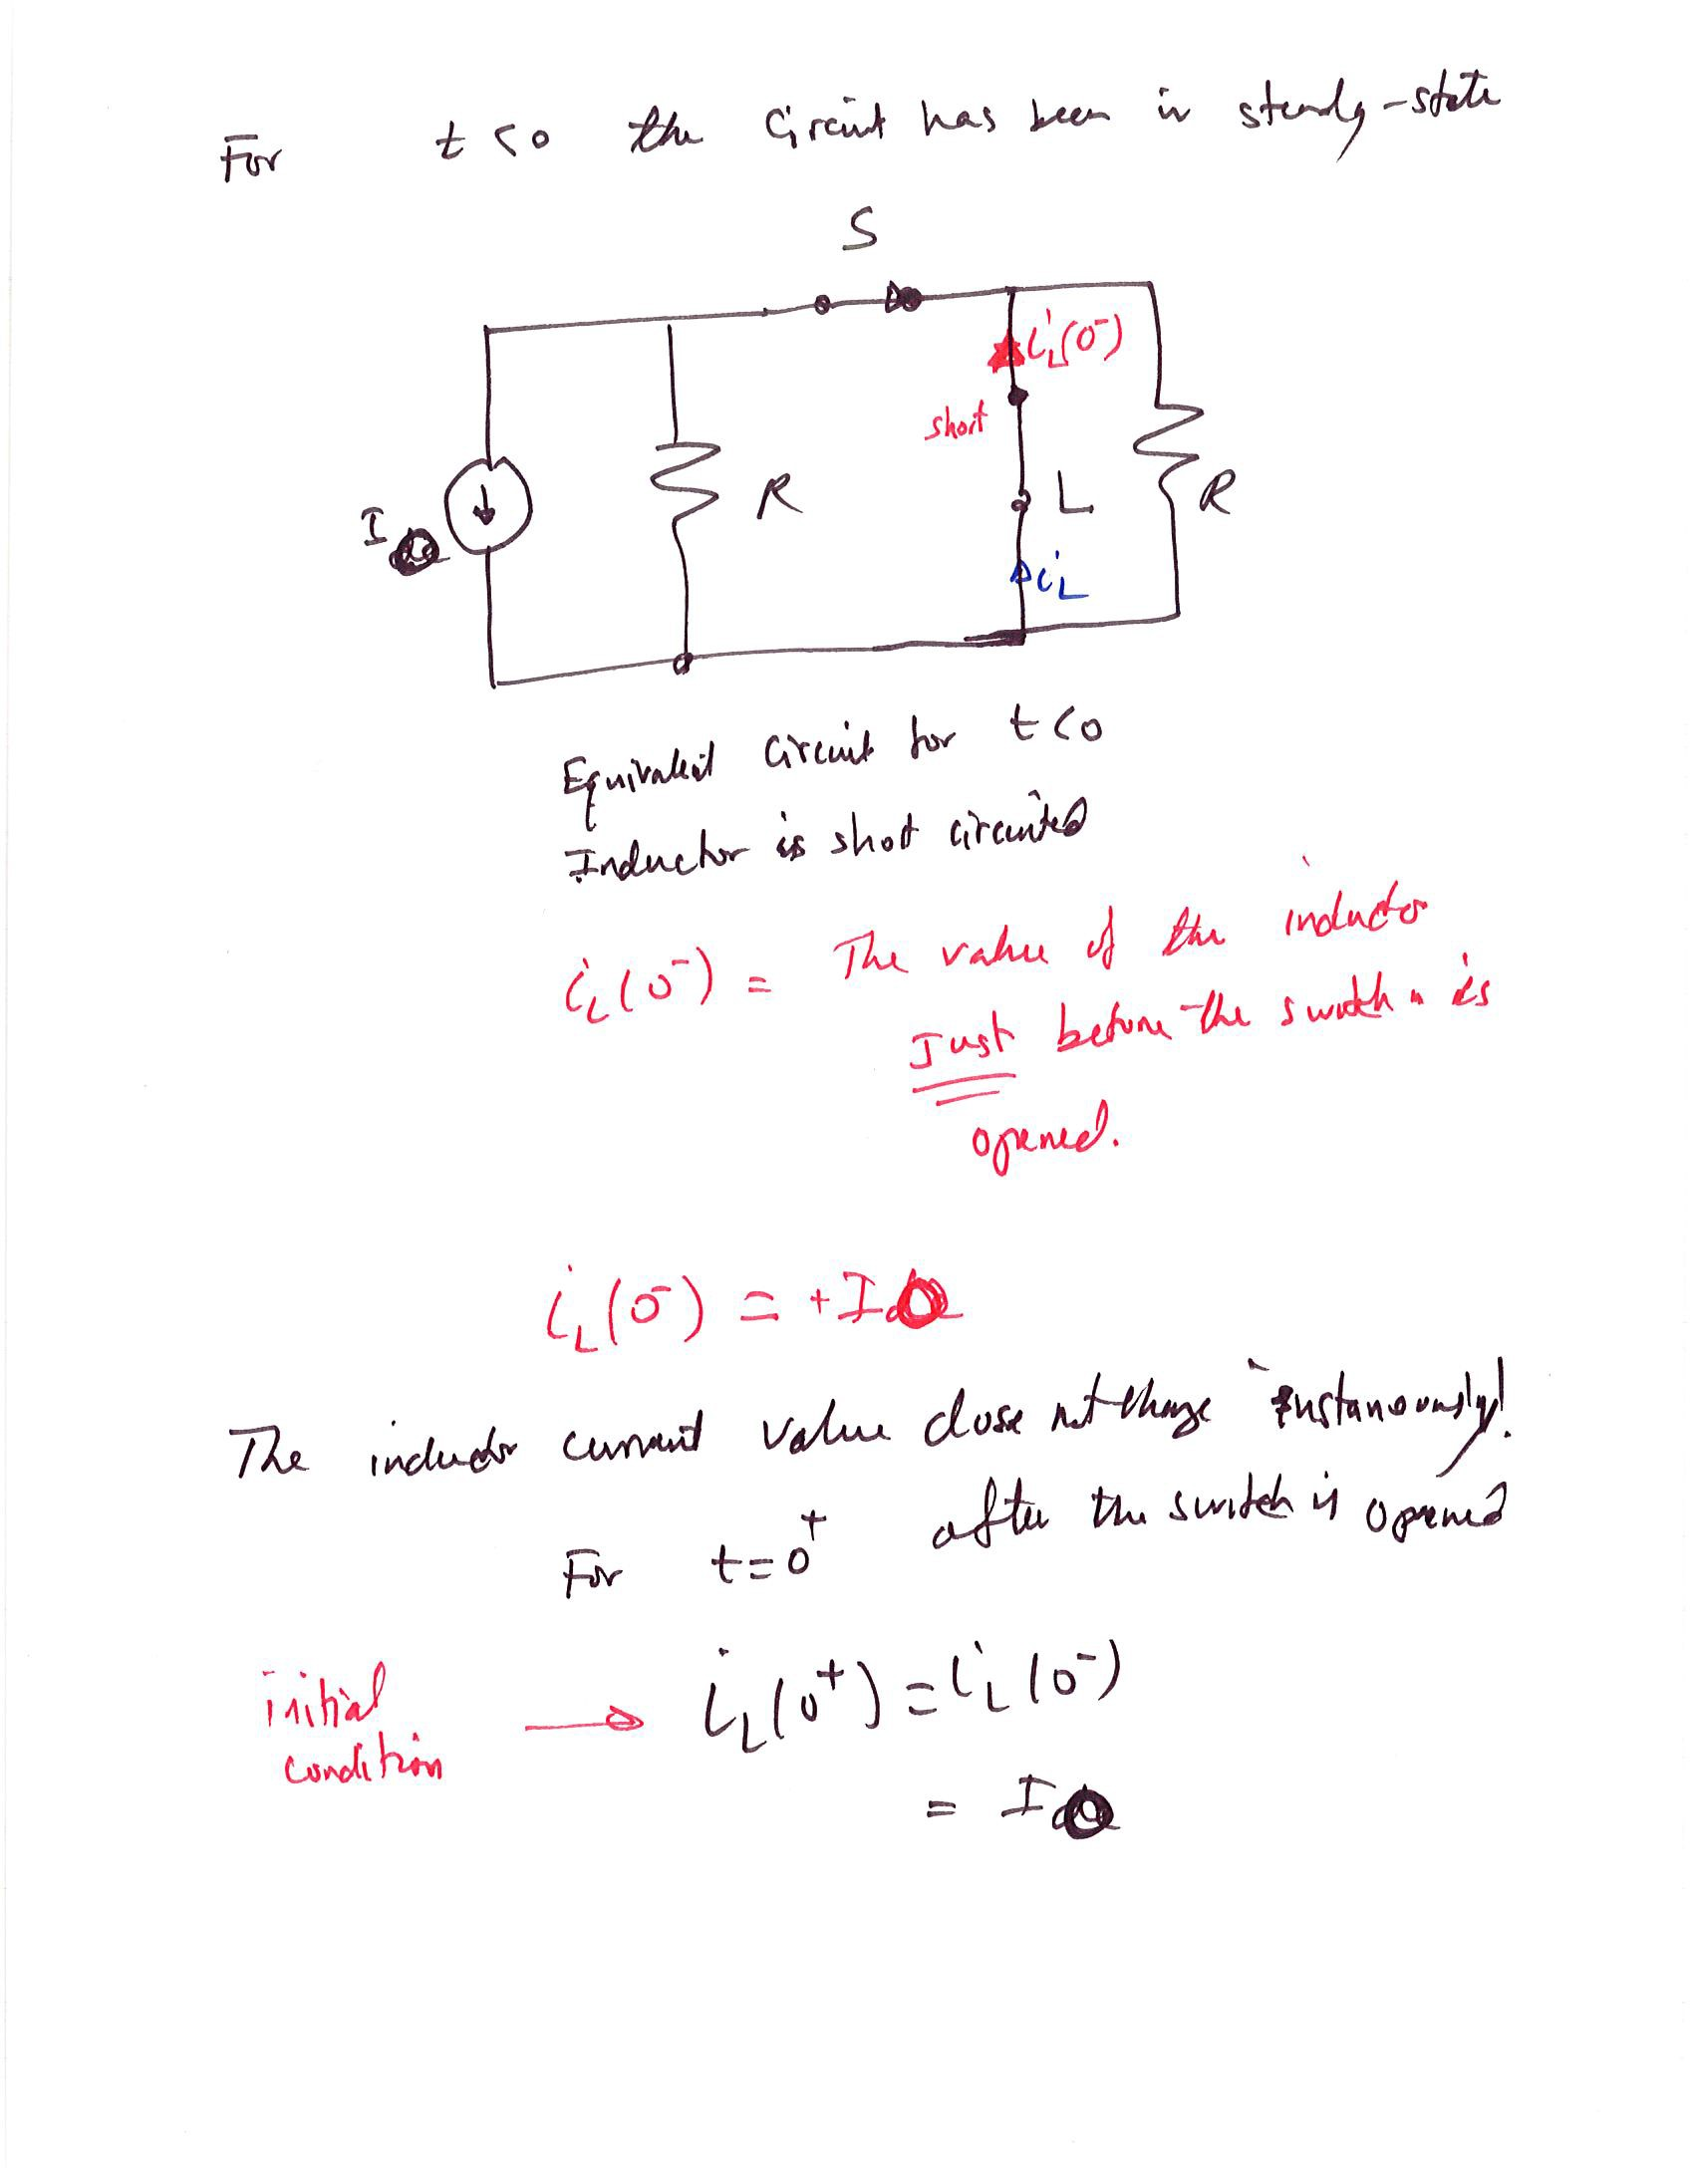 For t<0 the Circuit has been in steady-state
S
i_L(0⁻)
short
I
R
L
R
i_L
Equivalent Circuit for t<0
Inductor is short circuited
i_L(0⁻) = The value of the inductor
Just before the switch is
opened.
i_L(0⁻) = +I
The inductor current value does not change instanously!
For t=0⁺ after the switch is opened
initial
condition → i_L(0⁺) = i_L(0⁻)
= I